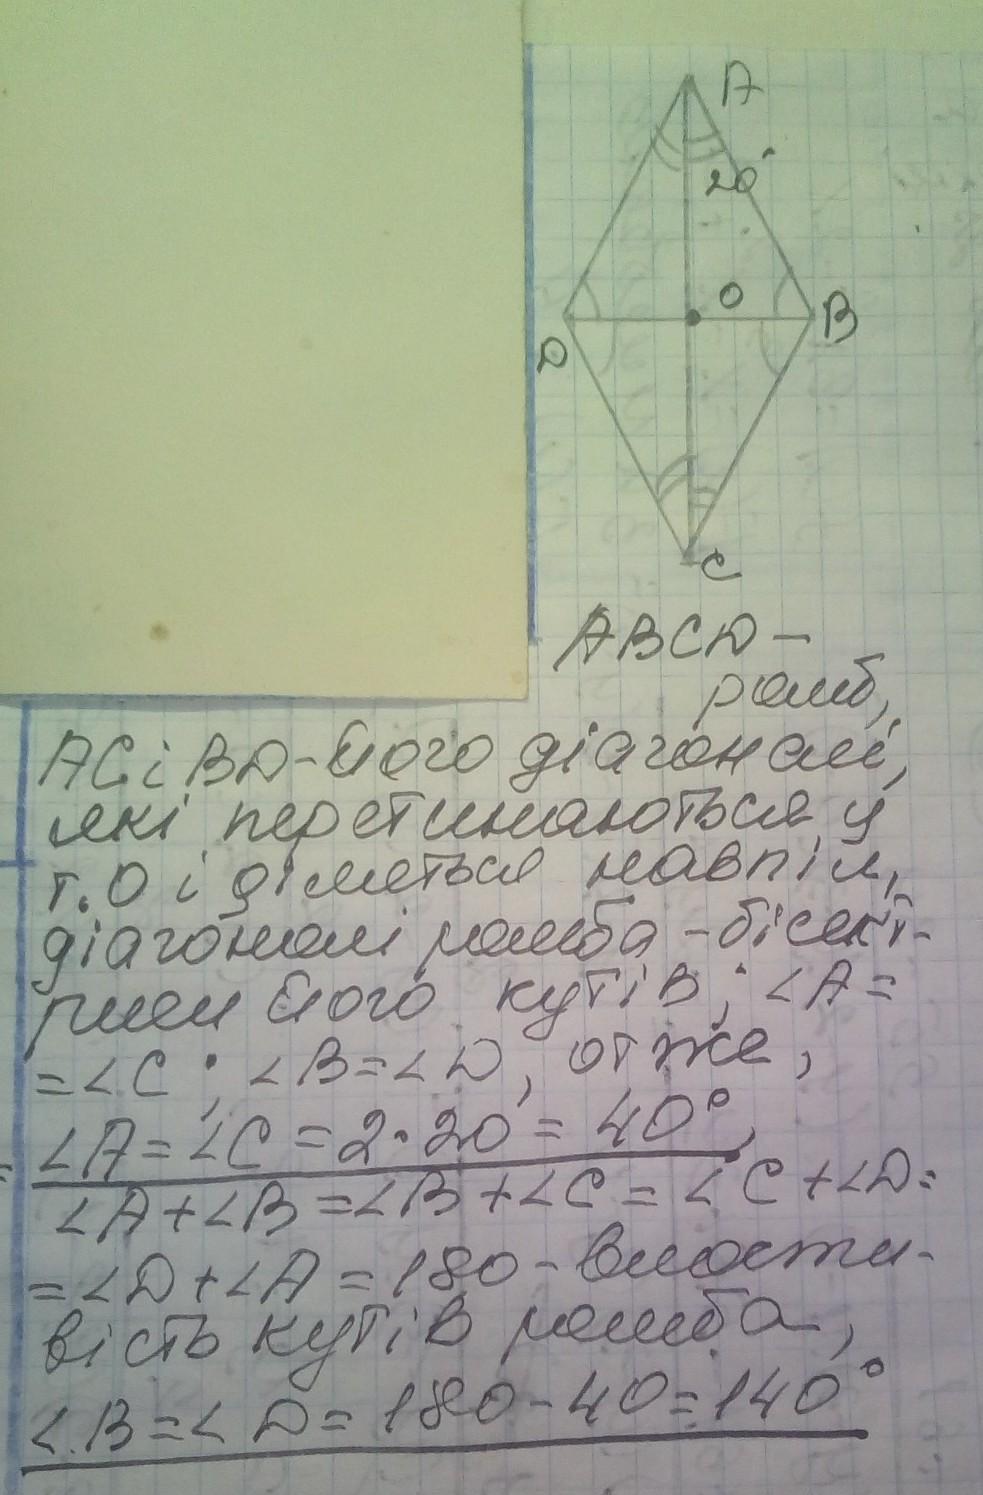 A
20°
O
B
D
C
ABCD –
ромб,
AC і BD – його діагоналі,
які перетинаються у
т. O і діляться навпіл,
діагоналі ромба – бісект-
риси його кутів; ∠A =
= ∠C; ∠B = ∠D, отже,
∠A = ∠C = 2·20 = 40°,
∠A + ∠B = ∠B + ∠C = ∠C + ∠D =
= ∠D + ∠A = 180 – власти-
вість кутів ромба,
∠B = ∠D = 180 - 40 = 140°